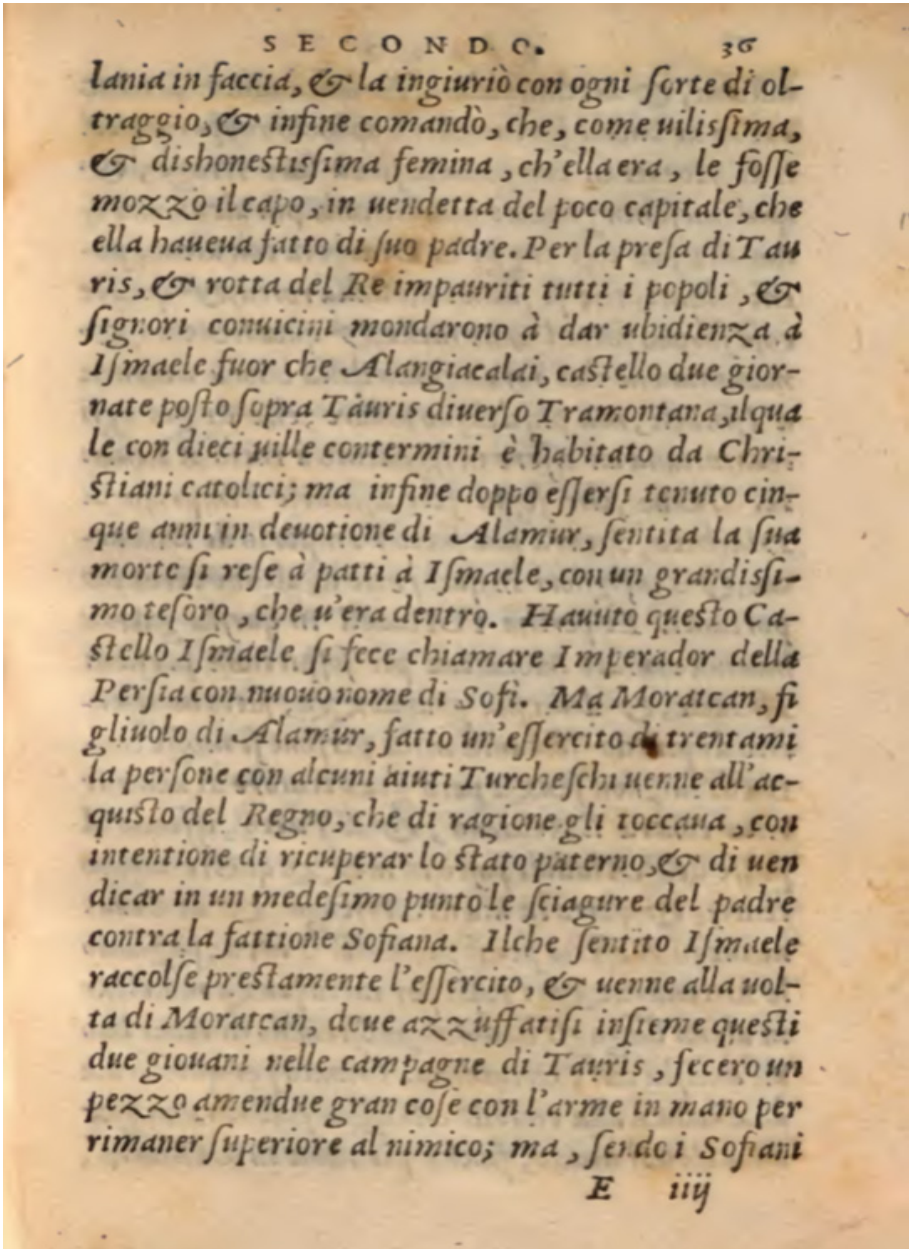 SECONDO. 36
lania in faccia, & la ingiuriò con ogni sorte di ol-
traggio, & infine comandò, che, come uilissima,
& dishonestissima femina, ch'ella era, le fosse
mozzo il capo, in uendetta del poco capitale, che
ella haueua fatto di suo padre. Per la presa di Tau
ris, & rotta del Re impauriti tutti i popoli, &
signori conuicini mondarono à dar ubidienza à
Ismaele fuor che Alangiacalai, castello due gior-
nate posto sopra Tauris diuerso Tramontana, ilqua
le con dieci uille contermini è habitato da Chri-
stiani catolici; ma infine doppo essersi tenuto cin-
que anni in deuotione di Alamur, sentita la sua
morte si rese à patti à Ismaele, con un grandissi-
mo tesoro, che u'era dentro. Hauuto questo Ca-
stello Ismaele si fece chiamare Imperador della
Persia con nuouo nome di Sofì. Ma Moratcan, fi
gliuolo di Alamur, fatto un'essercito di trentami
la persone con alcuni aiuti Turcheschi uenne all'ac-
quisto del Regno, che di ragione gli toccaua, con
intentione di ricuperar lo stato paterno, & di uen
dicar in un medesimo punto le sciagure del padre
contra la fattione Sofiana. Ilche sentito Ismaele
raccolse prestamente l'essercito, & uenne alla uol-
ta di Moratcan, doue azzuffatisi insieme questi
due giouani nelle campagne di Tauris, fecero un
pezzo amendue gran cose con l'arme in mano per
rimaner superiore al nimico; ma, sendo i Sofiani
E iiij